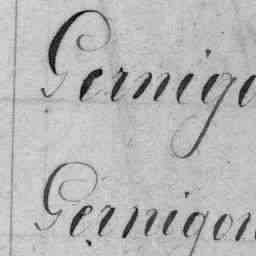 Gernigo
Gernigon